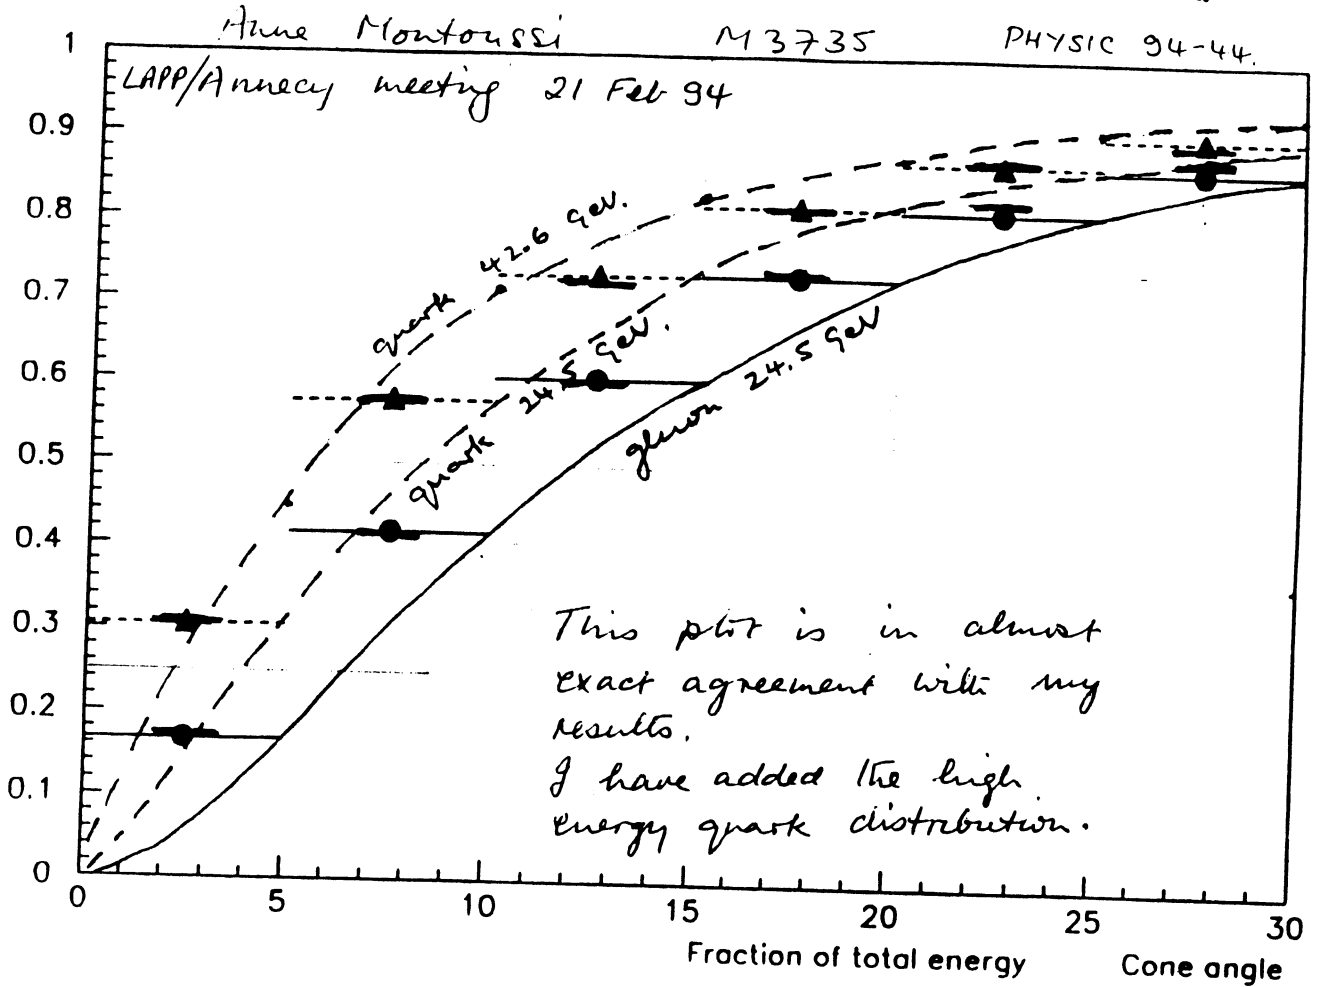 Anne Montoussi M3735 PHYSIC 94-44.
LAPP/Annecy meeting 21 Feb 94
1
0.9
0.8
0.7
0.6
0.5
0.4
0.3
0.2
0.1
0
quark 42.6 GeV.
quark 24.5 GeV.
gluon 24.5 GeV
This plot is in almost
exact agreement with my
results.
I have added the high
energy quark distribution.
0 5 10 15 20 25 30
Fraction of total energy Cone angle